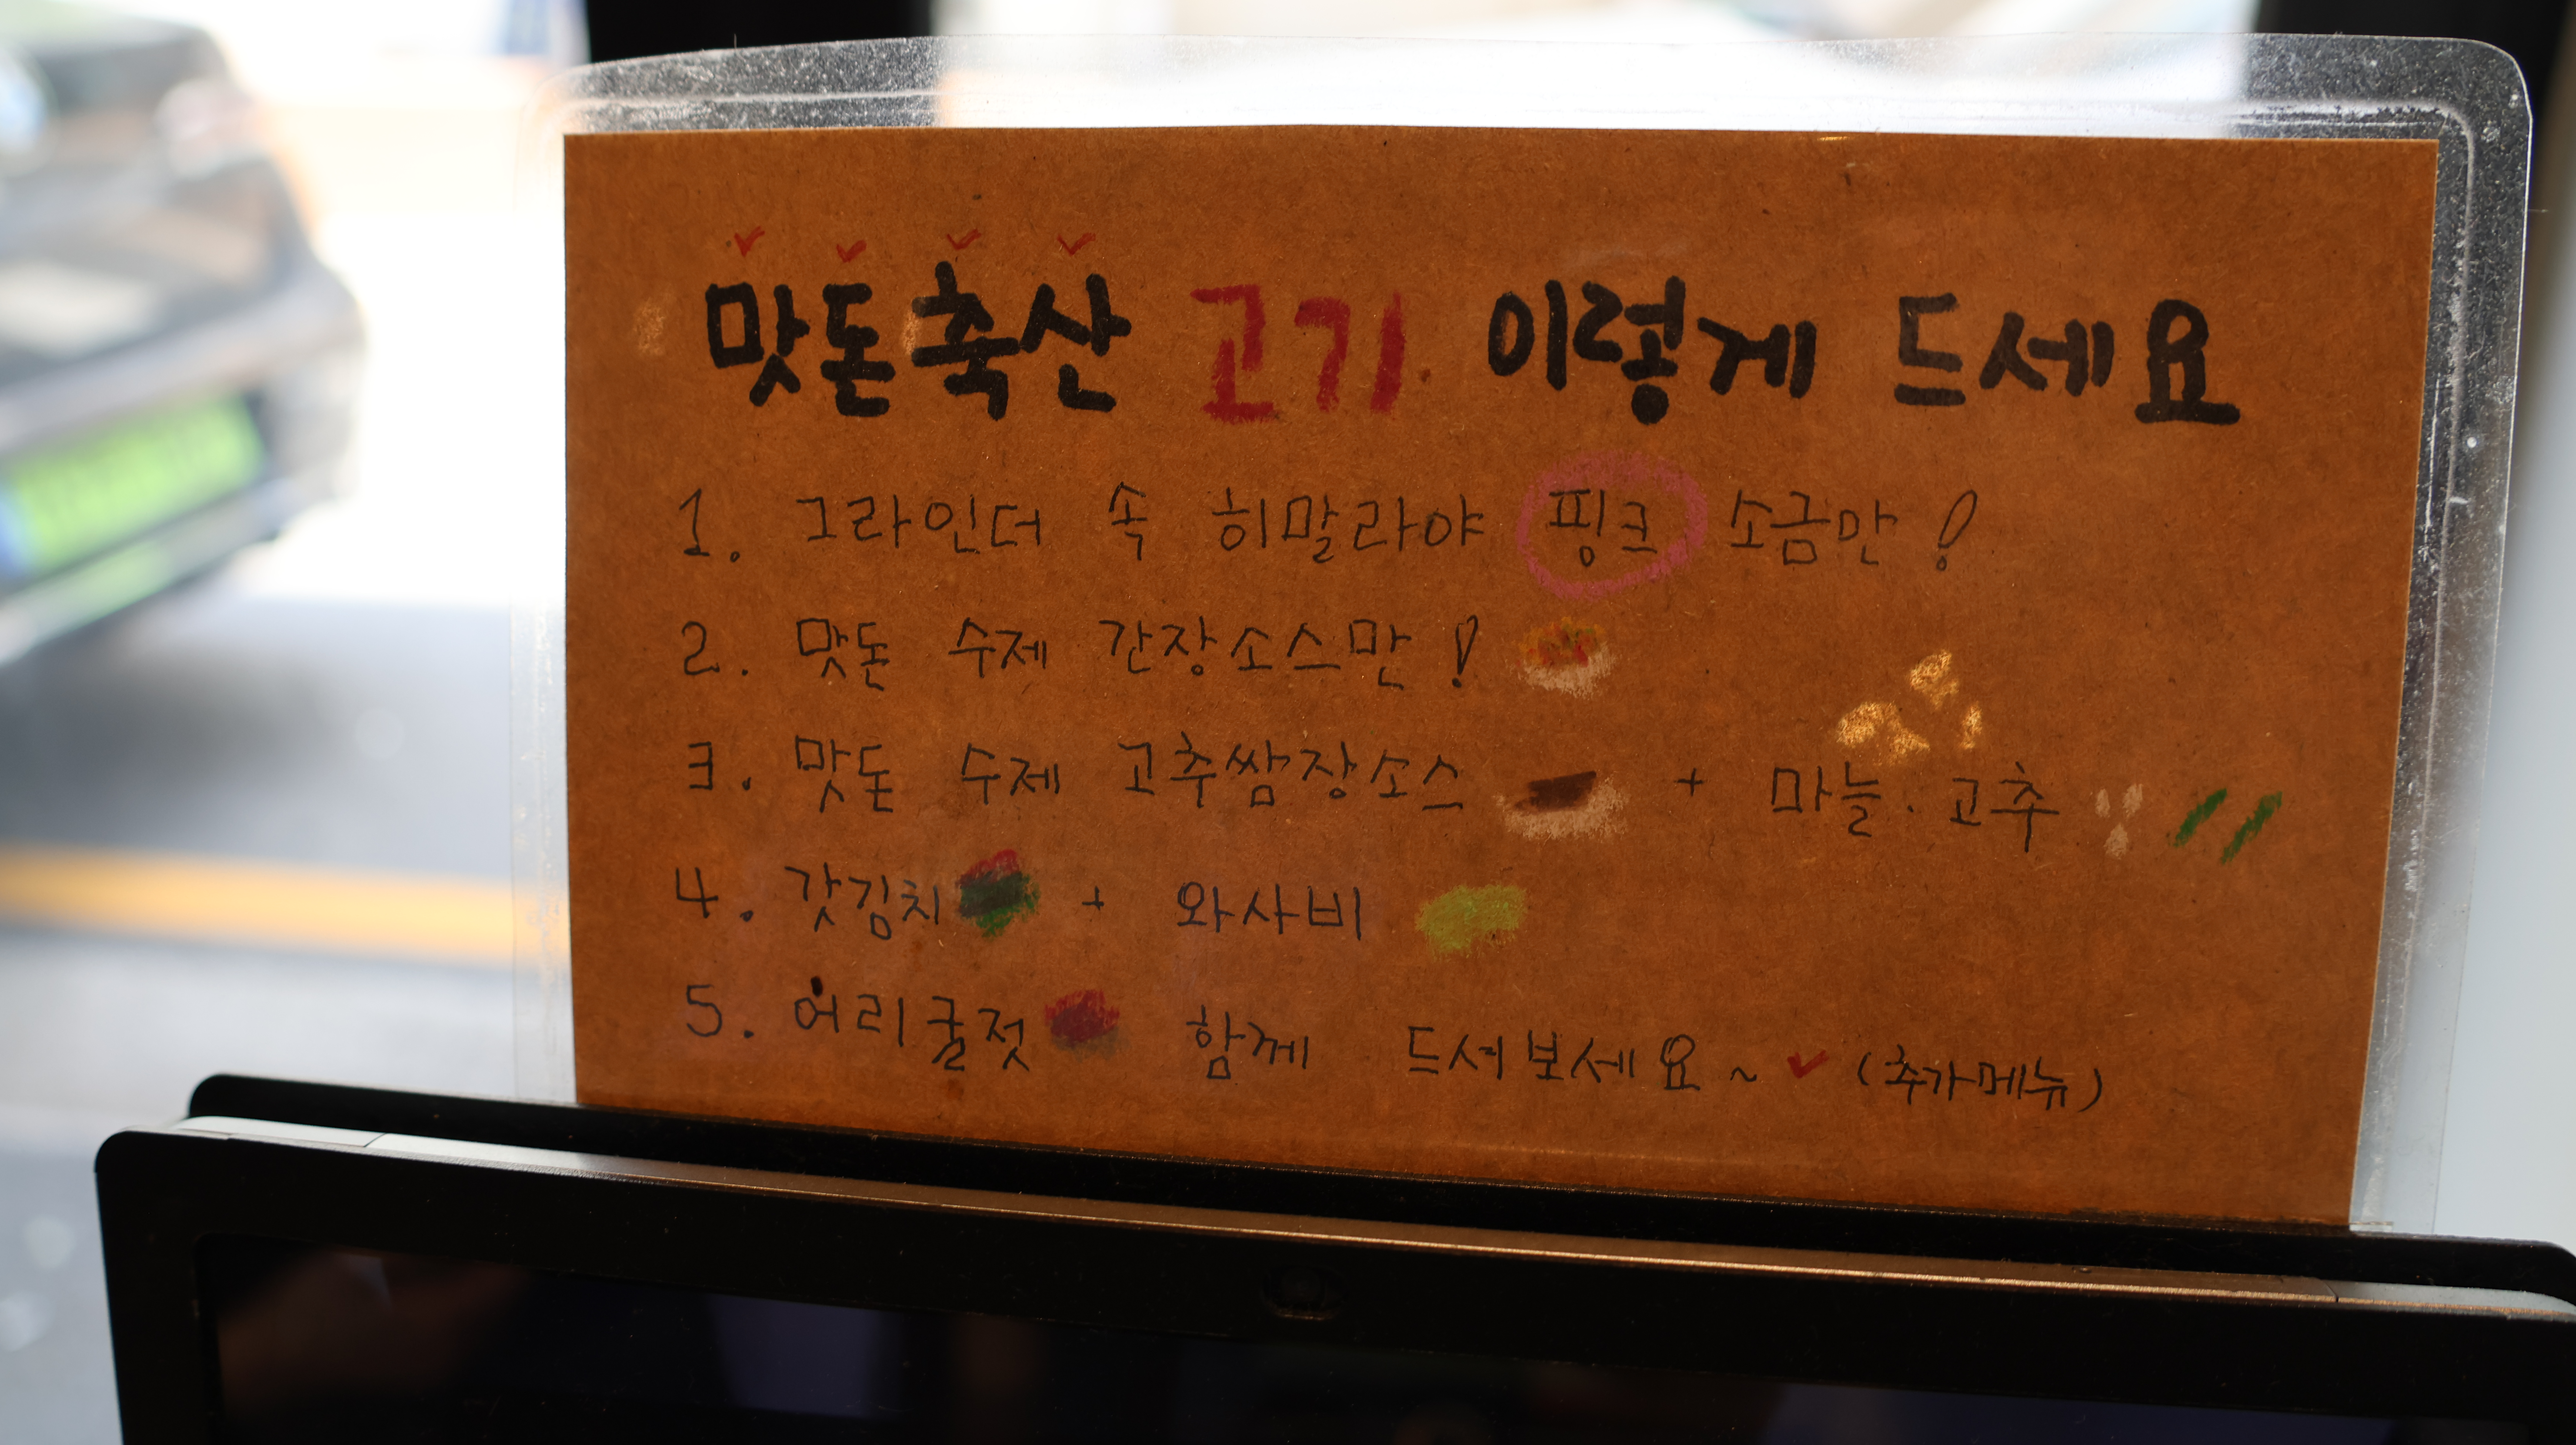 맛돈축산 고기 이렇게 드세요
1. 그라인더 속 히말라야 핑크 소금만!
2. 맛돈 수제 간장소스만!
3. 맛돈 수제 고추쌈장소스 + 마늘. 고추
4. 갓김치 + 와사비
5. 어리굴젓 함께 드셔보세요~ (추가메뉴)